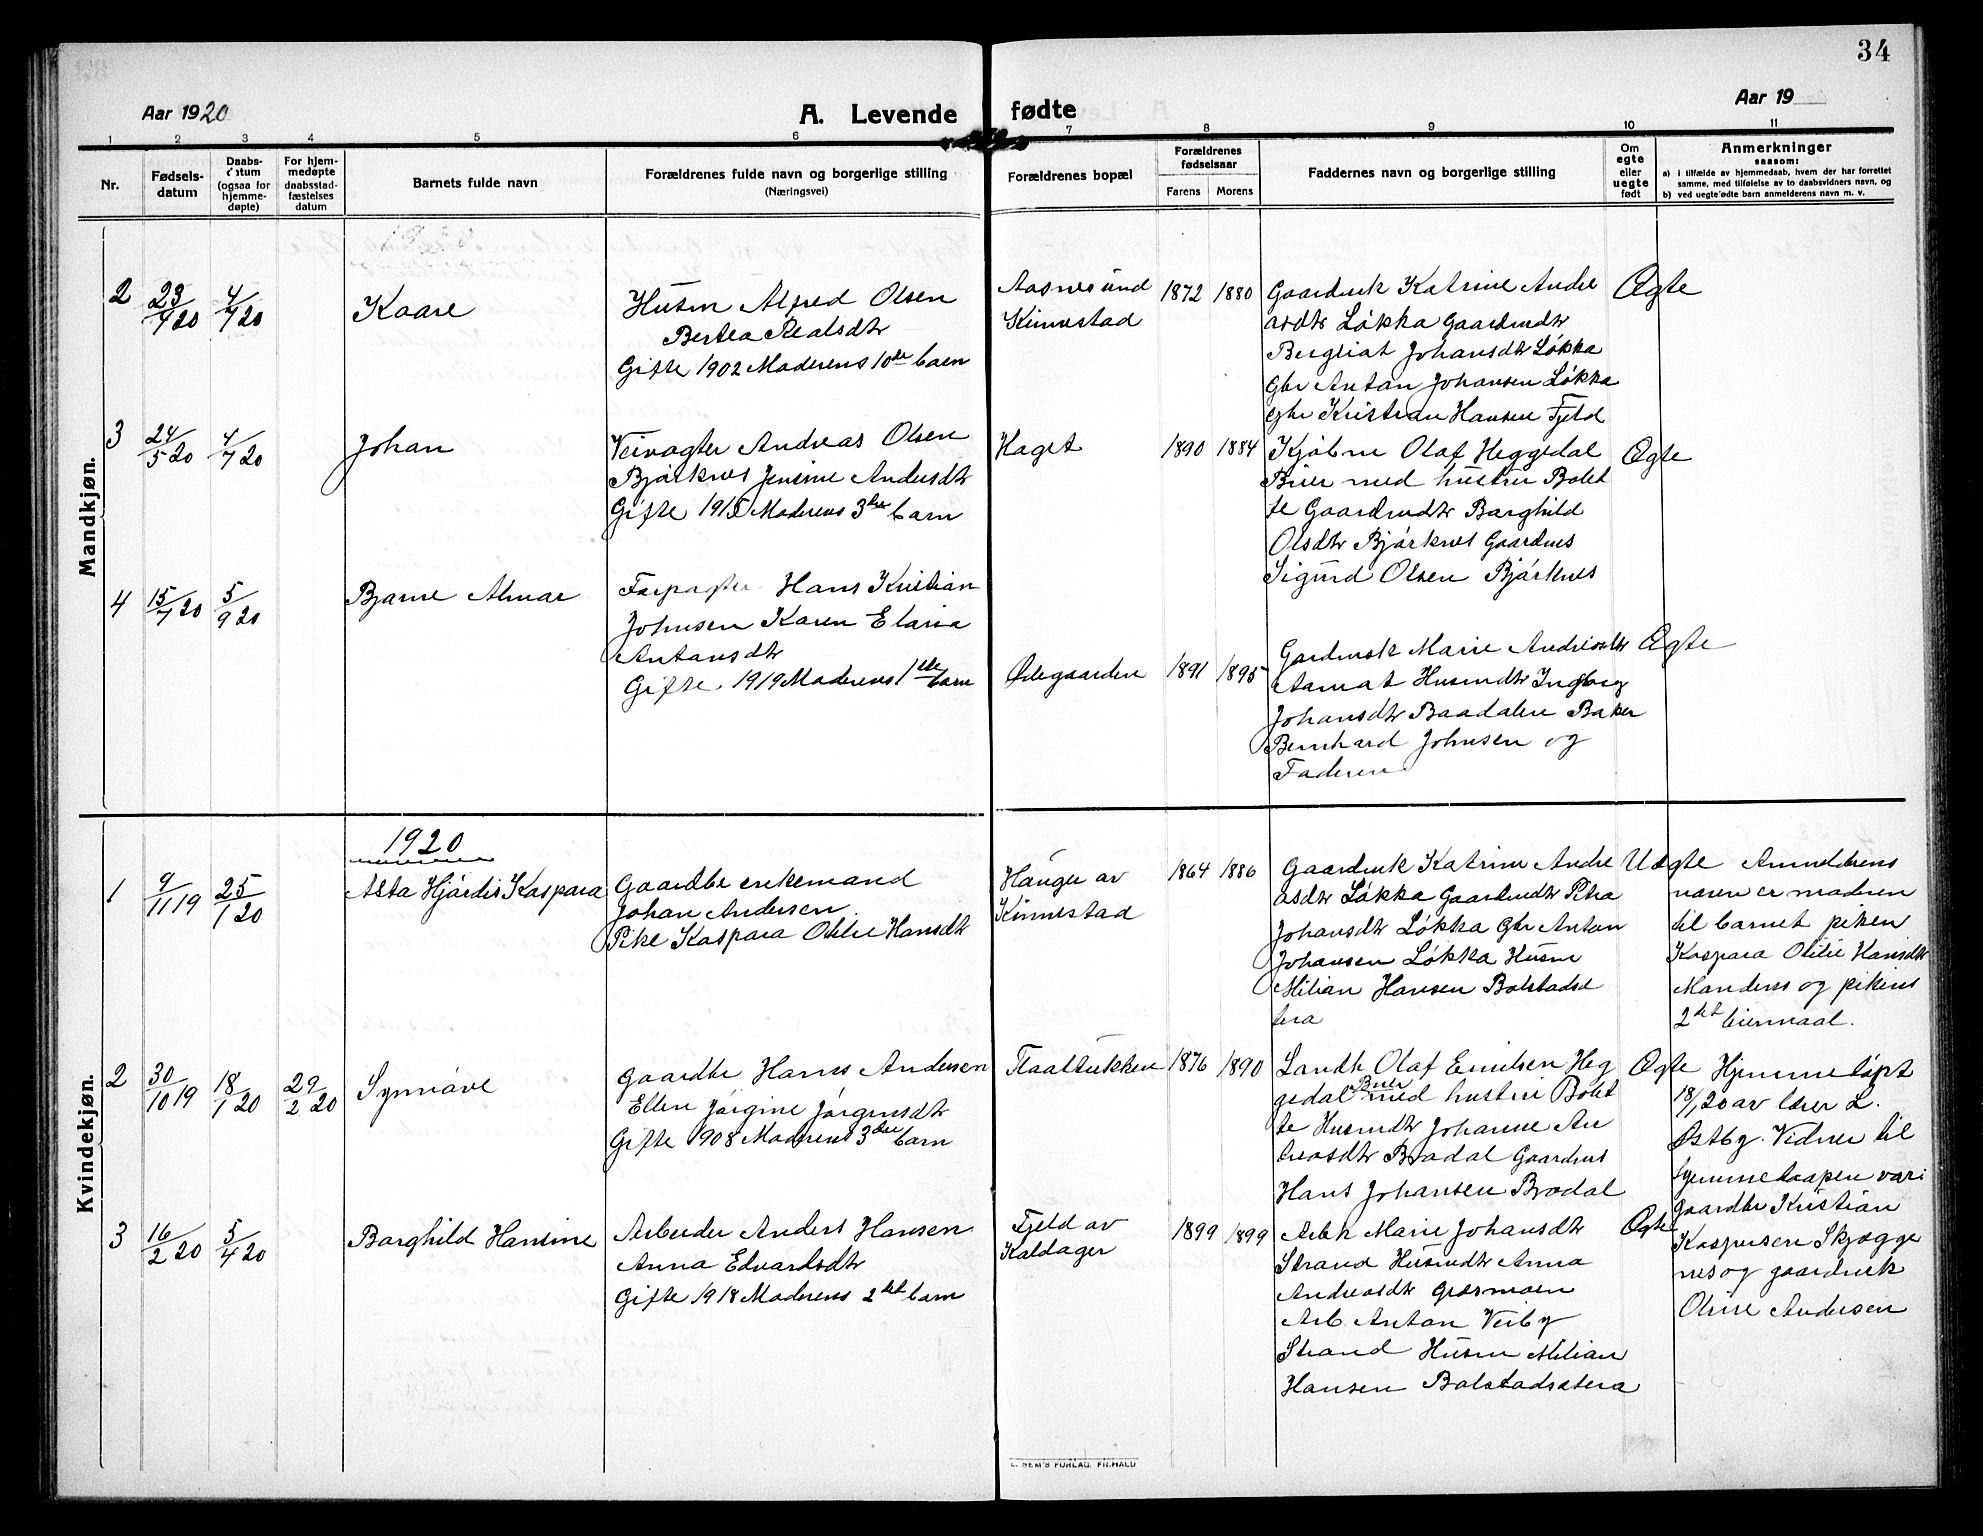 34
Aar 1920
A. Levende fødte
Aar 19
1 2 3 4 5 6 7 8 9 10 11
Nr.
Fødsels-
datum
Daabs-
datum
(ogsaa for
hjemme-
døpte)
For hjem-
medøpte
daabsstad-
fæstelses
datum
Barnets fulde navn
Forældrenes fulde navn og borgerlige stilling
(Næringsvei)
Forældrenes bopæl
Forældrenes
fødselsaar
Farens Morens
Faddernes navn og borgerlige stilling
Om
egte
eller
uegte
født
Anmerkninger
saasom:
a) i tilfælde av hjemmedaab, hvem der har forrettet
samme, med tilføielse av to daabsvidners navn, og
b) ved uegte fødte barn anmelderens navn m. v.
Mandkjøn.
2 23/4 20 4/7 20
Kaare
Husm Alfred Olsen
Bertea
Gifte 1902 Moderens 10de barn
Kinnestad
1872 1880
Gaardmk Katrine Andre
asdtr Løkka Gaardmdtr
Bergliat Johansdtr Løkka
Gbr Anton Johansen Løkka
gbr Kristian Hansen Fjeld
Ægte
3 24/5 20 4/7 20
Johan
Veivogter Andreas Olsen
Bjørknes Jensine Andersdtr
Gifte 1915 Moderens 3die barn
Haget
1890 1884
Kjøbm Olaf Heggedal
Buer med hustru Bolet
te Gaardmdtr Borghild
Olsdtr Bjørknes Gaardms
Sigurd Olsen Bjørknes
Ægte
4 15/7 20 5/9 20
Bjarne Almar
Forpagter Hans Kristian
Johnsen Karen Elaria
Antonsdtr
Gifte 1919 Moderens 1ste barn
Ødegaarden
1891 1895
Gardmsk Marie Andreasdtr
Aamot Husmdtr Ingborg
Johansdtr Baadalen Baker
Bernhard Johnsen og
Faderen
Ægte
Kvindekjøn.
1920
1 9/11 19 25/1 20
Asta Hjørdis Kaspara
Gaardbr enkemand
Johan Andersen
Pike Kaspara Otilie Hansdtr
Hauger av
Kinnestad
1864 1886
Gaardmk Katrine Andre
asdtr Løkka Gaardmdtr Petra
Johansdtr Løkka Gbr Anton
Johansen Løkka Husm
Milian Hansen Bolstadsæ
tera
Uægte
Anmelderens
navn er modren
til barnet piken
Kaspara Otilie Hansdtr
Mandens og pikens
2det leiermaal.
2 30/10 19 18/1 20 29/2 20
Synnøve
Gaardbr Hans Andersen
Ellen Jørgine Jørgensdtr
Gifte 1908 Moderens 3die barn
1876 1890
Landh Olaf Emilsen Heg
gedal Buer med hustru Bolet
te Husmdtr Johanne An
dreasdtr Brodal Gaardms
Hans Johansen Brodal
Ægte
Hjemmedøpt
18/1 20 av lærer L.
Østby. Vidner til
hjemmedaapen var:
gaardbr Kristian
Kaspersen Skjægge
nes og gaardmk
Oline Andersen
3 16/2 20 5/4 20
Borghild Hansine
Arbeider Anders Hansen
Anna Edvardsdtr
Gifte 1918 Moderens 2det barn
Fjeld av
Kaldager
1899 1899
Arbk Marie Johansdtr
Strand Husmdtr Anna
Andreasdtr Græsmoen
Arb. Anton Veiby
Strand Husm Milian
Hansen Bolstadsætera
Ægte